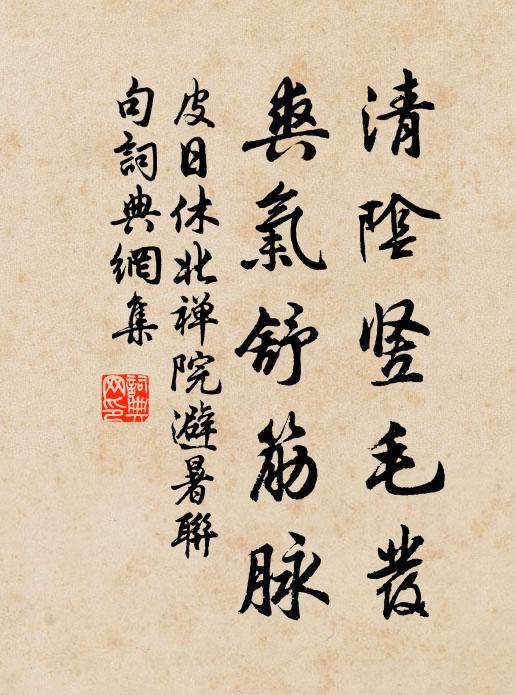 清陰竖毛發
爽氣舒筋脉
皮日休北禅院避暑聯
句詞典網集
詞典网印